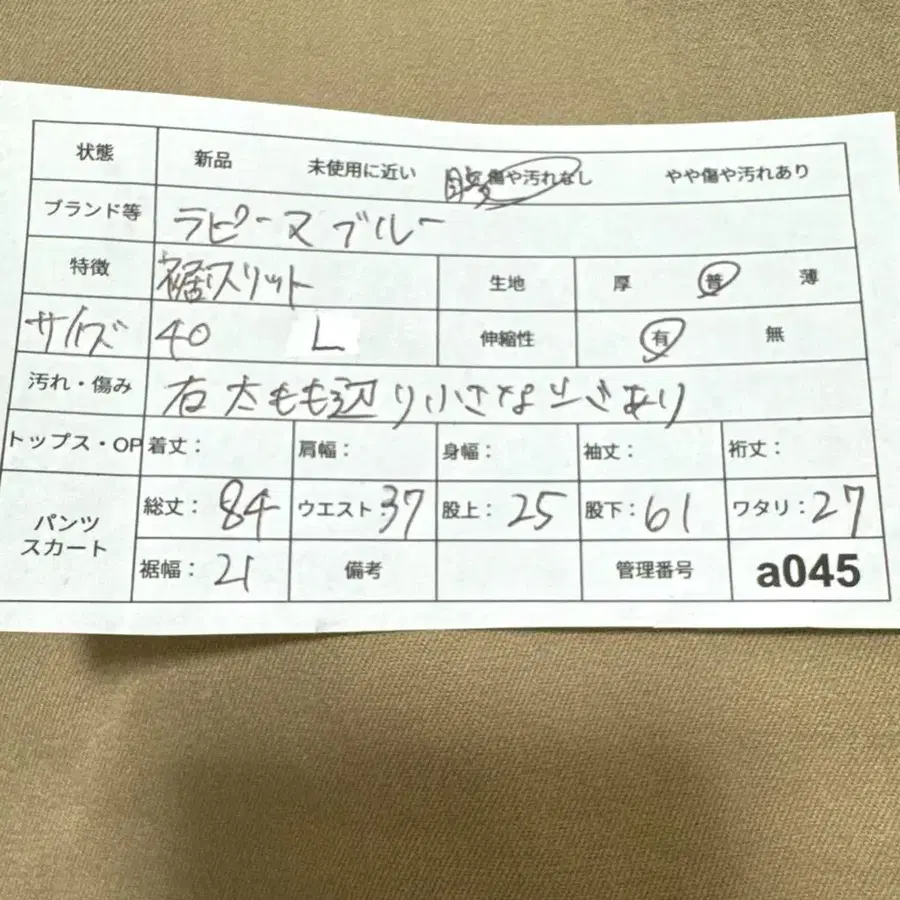 状態 新品 未使用に近い 目立 傷や汚れなし やや傷や汚れあり
ブランド等 ラピーヌブルー
特徴 裾スリット 生地 厚 普 薄
サイズ 40 L 伸縮性 有 無
汚れ・傷み 右太もも辺り小さな
トップス・OP 着丈: 肩幅: 身幅: 袖丈: 裄丈:
パンツ スカート 総丈: 84 ウエスト 37 股上: 25 股下: 61 ワタリ: 27
裾幅: 21 備考 管理番号 a045